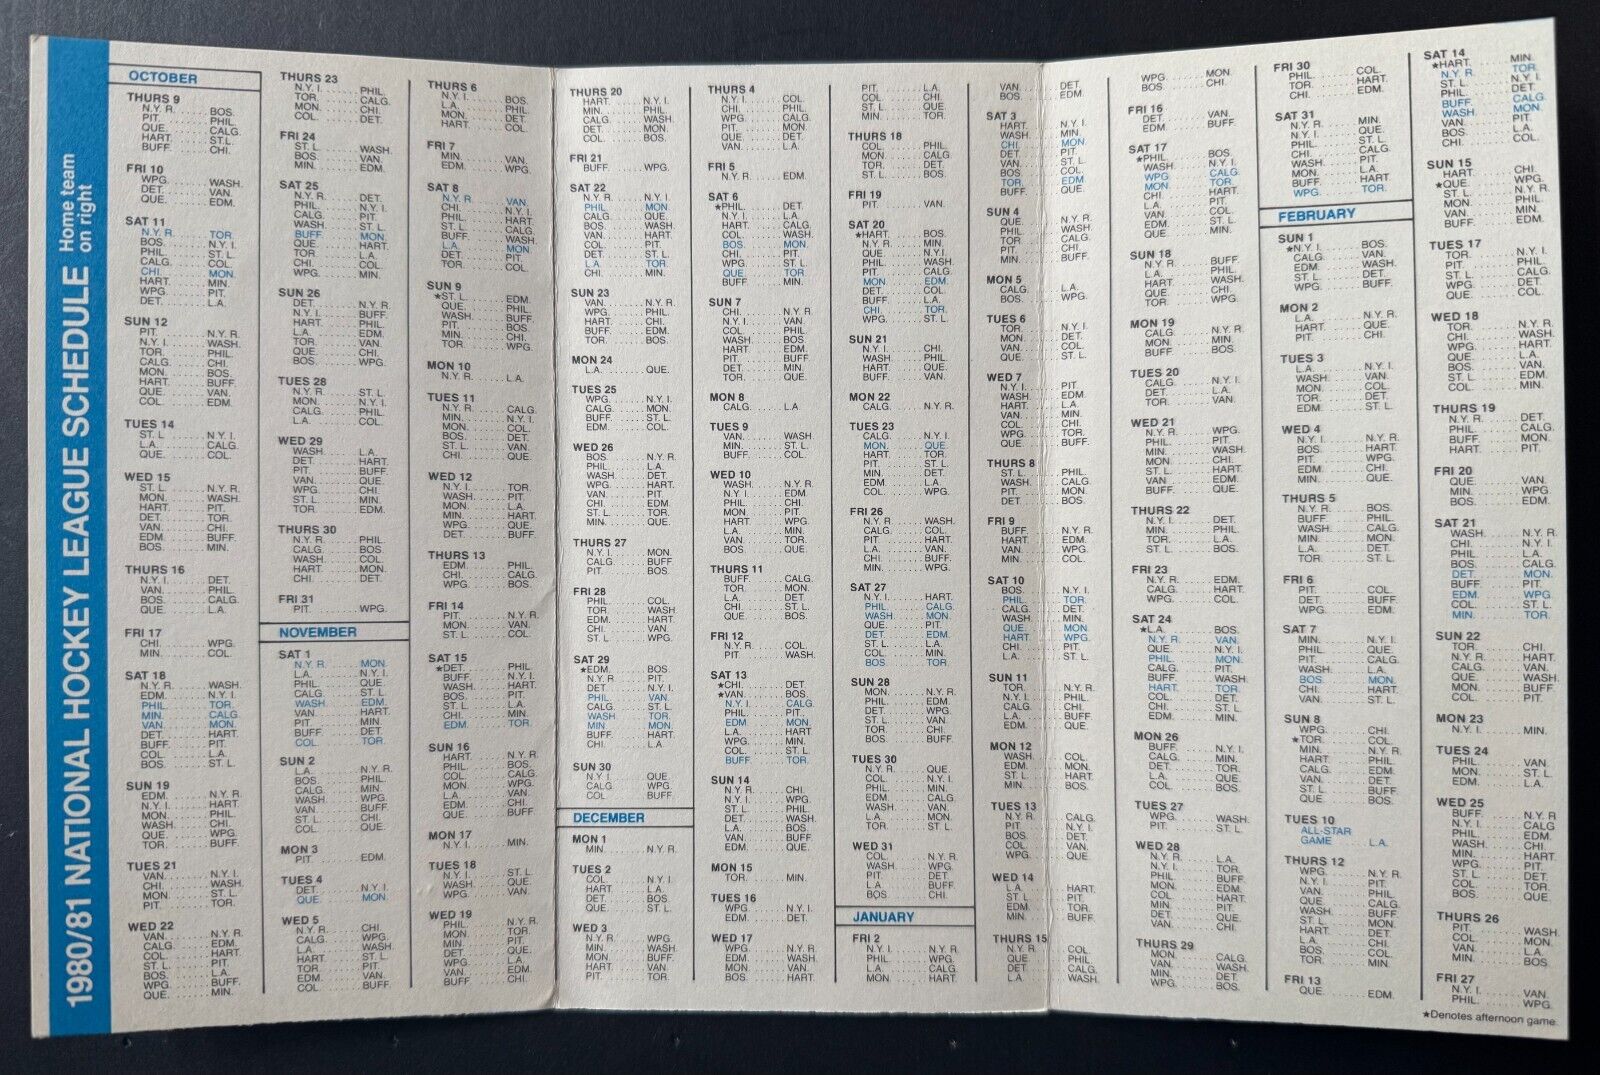 1980/81 NATIONAL HOCKEY LEAGUE SCHEDULE Home team on right
OCTOBER
THURS 9
N.Y.R. BOS.
PIT. PHIL.
QUE. CALG.
HART. ST.L.
BUFF. CHI.
FRI 10
WPG. WASH.
DET. VAN.
QUE. EDM.
SAT 11
N.Y.R. TOR.
BOS. N.Y.I.
PHIL. ST. L.
CALG. COL.
CHI. MON.
HART. MIN.
WPG. PIT.
DET. L.A.
SUN 12
PIT. N.Y.R.
N.Y.I. WASH.
TOR. PHIL.
CALG. CHI.
MON. BOS.
HART. BUFF.
QUE. VAN.
COL. EDM.
TUES 14
ST. L. N.Y.I.
L.A. CALG.
QUE. COL.
WED 15
ST. L. N.Y.R.
MON. WASH.
HART. PIT.
DET. TOR.
VAN. CHI.
EDM. BUFF.
BOS. MIN.
THURS 16
N.Y.I. DET.
VAN. PHIL.
BOS. CALG.
QUE. L.A.
FRI 17
CHI. WPG.
MIN. COL.
SAT 18
N.Y.R. WASH.
EDM. N.Y.I.
PHIL. TOR.
MIN. CALG.
VAN. MON.
DET. HART.
BUFF. PIT.
COL. L.A.
BOS. ST. L.
SUN 19
EDM. N.Y.R.
N.Y.I. HART.
MON. PHIL.
WASH. CHI.
QUE. WPG.
TOR. BUFF.
TUES 21
VAN. N.Y.I.
CHI. WASH.
MON. ST. L.
PIT. TOR.
WED 22
VAN. N.Y.R.
CALG. EDM.
COL. HART.
ST. L. PIT.
BOS. L.A.
WPG. BUFF.
QUE. MIN.
THURS 23
N.Y.I. PHIL.
TOR. CALG.
MON. CHI.
COL. DET.
FRI 24
ST. L. WASH.
BOS. VAN.
MIN. EDM.
SAT 25
N.Y.R. DET.
PHIL. N.Y.I.
CALG. PIT.
WASH. ST. L.
BUFF. MON.
QUE. HART.
TOR. L.A.
CHI. COL.
WPG. MIN.
SUN 26
DET. N.Y.R.
N.Y.I. BUFF.
HART. PHIL.
L.A. EDM.
TOR. VAN.
QUE. CHI.
BOS. WPG.
TUES 28
N.Y.R. ST. L.
MON. N.Y.I.
CALG. PHIL.
L.A. COL.
WED 29
WASH. L.A.
DET. HART.
PIT. BUFF.
VAN. QUE.
WPG. CHI.
ST. L. MIN.
MON. EDM.
THURS 30
N.Y.R. PHIL.
CALG. BOS.
WASH. COL.
HART. MON.
CHI. DET.
FRI 31
PIT. WPG.
NOVEMBER
SAT 1
N.Y.R. MON.
L.A. N.Y.I.
PHIL. QUE.
CALG. ST. L.
WASH. EDM.
VAN. HART.
PIT. MIN.
BUFF. DET.
COL. TOR.
SUN 2
L.A. N.Y.R.
BOS. PHIL.
CALG. MIN.
WASH. WPG.
VAN. BUFF.
ST. L. CHI.
COL. QUE.
MON 3
PIT. EDM.
TUES 4
DET. N.Y.I.
QUE. MON.
WED 5
N.Y.R. CHI.
CALG. WPG.
L.A. WASH.
HART. ST. L.
TOR. PIT.
EDM. VAN.
COL. BUFF.
THURS 6
N.Y.I. BOS.
L.A. PHIL.
MON. DET.
HART. COL.
FRI 7
MIN. VAN.
WPG. EDM.
SAT 8
N.Y.R. VAN.
CHI. N.Y.I.
PHIL. HART.
ST. L. CALG.
BUFF. WASH.
L.A. MON.
DET. PIT.
TOR. COL.
SUN 9
★ST. L. EDM.
QUE. PHIL.
WASH. BUFF.
PIT. BOS.
MIN. CHI.
TOR. WPG.
MON 10
N.Y.R. L.A.
TUES 11
N.Y.R. CALG.
MIN. N.Y.I.
MON. COL.
BOS. DET.
ST. L. VAN.
CHI. QUE.
WED 12
N.Y.I. TOR.
WASH. PIT.
MON. L.A.
MIN. HART.
WPG. QUE.
DET. BUFF.
THURS 13
EDM. PHIL.
CHI. CALG.
WPG. BOS.
FRI 14
PIT. N.Y.R.
MON. VAN.
ST. L. COL.
SAT 15
★DET. PHIL.
BUFF. N.Y.I.
WASH. HART.
BOS. PIT.
ST. L. L.A.
CHI. MIN.
EDM. TOR.
SUN 16
HART. N.Y.R.
PHIL. BOS.
COL. CALG.
MON. WPG.
L.A. VAN.
EDM. CHI.
QUE. BUFF.
MON 17
N.Y.I. MIN.
TUES 18
N.Y.I. ST. L.
WASH. QUE.
WPG. VAN.
WED 19
PHIL. N.Y.R.
MON. TOR.
MIN. L.A.
DET. QUE.
WPG. PIT.
VAN. EDM.
BUFF. CHI.
THURS 20
HART. N.Y.I.
MIN. PHIL.
CALG. WASH.
DET. MON.
COL. BOS.
FRI 21
BUFF. WPG.
SAT 22
N.Y.R. N.Y.I.
PHIL. MON.
CALG. QUE.
BOS. WASH.
VAN. HART.
COL. PIT.
DET. ST. L.
L.A. TOR.
CHI. MIN.
SUN 23
VAN. N.Y.R.
WPG. PHIL.
HART. CHI.
BUFF. EDM.
TOR. BOS.
MON 24
L.A. QUE.
TUES 25
WPG. N.Y.I.
CALG. MON.
BUFF. ST. L.
EDM. COL.
WED 26
BOS. N.Y.R.
PHIL. L.A.
WASH. DET.
WPG. HART.
VAN. PIT.
CHI. EDM.
ST. L. TOR.
MIN. QUE.
THURS 27
N.Y.I. MON.
CALG. BUFF.
PIT. BOS.
FRI 28
PHIL. COL.
TOR. WASH.
EDM. HART.
CHI. VAN.
ST. L. WPG.
SAT 29
★EDM. BOS.
N.Y.R. PIT.
DET. N.Y.I.
PHIL. VAN.
CALG. ST. L.
WASH. TOR.
MIN. MON.
BUFF. HART.
CHI. L.A.
SUN 30
N.Y.I. QUE.
CALG. WPG.
COL. BUFF.
DECEMBER
MON 1
MIN. N.Y.R.
TUES 2
COL. N.Y.I.
HART. L.A.
DET. BUFF.
QUE. ST. L.
WED 3
N.Y.R. WPG.
MIN. WASH.
MON. BUFF.
HART. VAN.
PIT. TOR.
THURS 4
N.Y.I. COL.
CHI. PHIL.
WPG. CALG.
PIT. MON.
QUE. DET.
VAN. L.A.
FRI 5
N.Y.R. EDM.
SAT 6
★PHIL. DET.
N.Y.I. L.A.
HART. CALG.
COL. WASH.
BOS. MON.
CHI. PIT.
WPG. ST. L.
QUE. TOR.
BUFF. MIN.
SUN 7
CHI. N.Y.R.
N.Y.I. VAN.
COL. PHIL.
WASH. BOS.
HART. EDM.
PIT. BUFF.
DET. MIN.
TOR. QUE.
MON 8
CALG. L.A.
TUES 9
VAN. WASH.
MIN. ST. L.
BUFF. COL.
WED 10
WASH. N.Y.R.
N.Y.I. EDM.
PHIL. CHI.
MON. PIT.
HART. WPG.
L.A. MIN.
VAN. TOR.
BOS. QUE.
THURS 11
BUFF. CALG.
TOR. MON.
L.A. DET.
EDM. CHI.
QUE. BOS.
FRI 12
N.Y.R. COL.
PIT. WASH.
SAT 13
★CHI. DET.
★VAN. BOS.
N.Y.I. CALG.
PHIL. PIT.
EDM. MON.
HART. QUE.
WPG. MIN.
COL. ST. L.
BUFF. TOR.
SUN 14
N.Y.R. CHI.
N.Y.I. WPG.
ST. L. PHIL.
DET. WASH.
L.A. BOS.
VAN. BUFF.
EDM. QUE.
MON 15
TOR. MIN.
TUES 16
WPG. N.Y.I.
EDM. DET.
WED 17
WPG. N.Y.R.
EDM. WASH.
MON. MIN.
BOS. HART.
PIT. L.A.
COL. CHI.
ST. L. QUE.
MIN. TOR.
THURS 18
COL. PHIL.
MON. CALG.
TOR. DET.
ST. L. BUFF.
FRI 19
PIT. VAN.
SAT 20
★HART. BOS.
N.Y.R. MIN.
QUE. N.Y.I.
PHIL. WASH.
PIT. CALG.
MON. EDM.
DET. COL.
BUFF. L.A.
CHI. TOR.
WPG. ST. L.
SUN 21
CALG. CHI.
WASH. PHIL.
HART. N.Y.R.
BUFF. VAN.
MON 22
CALG. N.Y.R.
TUES 23
CALG. N.Y.I.
MON. QUE.
HART. TOR.
PIT. ST. L.
MIN. DET.
EDM. L.A.
COL. WPG.
FRI 26
N.Y.R. WASH.
CALG. COL.
PIT. HART.
L.A. VAN.
CHI. BUFF.
MIN. WPG.
SAT 27
N.Y.I. HART.
PHIL. CALG.
WASH. MON.
QUE. PIT.
DET. EDM.
ST. L. L.A.
COL. MIN.
BOS. TOR.
SUN 28
MON. N.Y.R.
PHIL. EDM.
DET. WPG.
ST. L. VAN.
TOR. CHI.
COL. BUFF.
TUES 30
N.Y.R. QUE.
COL. N.Y.I.
PHIL. MIN.
EDM. CALG.
WASH. VAN.
MON. L.A.
TOR. ST. L.
WED 31
COL. N.Y.R.
WASH. WPG.
PIT. DET.
L.A. BUFF.
BOS. CHI.
JANUARY
FRI 2
N.Y.I. N.Y.R.
CALG. L.A.
MON. HART.
VAN. DET.
BOS. EDM.
SAT 3
HART. N.Y.I.
WASH. MIN.
CHI. MON.
DET. PIT.
VAN. ST. L.
BOS. COL.
TOR. EDM.
BUFF. QUE.
SUN 4
QUE. N.Y.R.
N.Y.I. WPG.
TOR. CALG.
PIT. CHI.
MIN. BOS.
MON 5
CALG. L.A.
BOS. WPG.
TUES 6
TOR. N.Y.I.
MON. WASH.
VAN. COL.
QUE. ST. L.
WED 7
N.Y.I. PIT.
WASH. EDM.
HART. L.A.
VAN. MIN.
COL. CHI.
WPG. TOR.
QUE. BUFF.
THURS 8
ST. L. PHIL.
N.Y.R. CALG.
PIT. MON.
DET. BOS.
FRI 9
BUFF. N.Y.R.
N.Y.I. WASH.
HART. EDM.
VAN. WPG.
COL. MIN.
SAT 10
BOS. N.Y.I.
PHIL. TOR.
CALG. DET.
WASH. ST. L.
QUE. MON.
HART. WPG.
PIT. COL.
L.A. CHI.
SUN 11
TOR. N.Y.R.
N.Y.I. PHIL.
CHI. ST. L.
CALG. HART.
L.A. BUFF.
EDM. QUE.
MON 12
WASH. COL.
EDM. MON.
ST. L. HART.
MIN. BOS.
TUES 13
N.Y.R. CALG.
PIT. N.Y.I.
BOS. DET.
COL. VAN.
WPG. QUE.
WED 14
L.A. HART.
ST. L. PIT.
EDM. TOR.
MIN. BUFF.
THURS 15
N.Y.R. COL.
QUE. PHIL.
DET. CALG.
L.A. WASH.
WPG. MON.
BOS. CHI.
FRI 16
DET. VAN.
EDM. BUFF.
SAT 17
★PHIL. BOS.
WASH. N.Y.I.
WPG. CALG.
MON. TOR.
CHI. HART.
L.A. PIT.
VAN. COL.
MIN. ST. L.
SUN 18
N.Y.R. BUFF.
N.Y.I. PHIL.
WASH. DET.
HART. EDM.
QUE. CHI.
TOR. WPG.
MON 19
CALG. N.Y.R.
MON. MIN.
TUES 20
CALG. N.Y.I.
DET. L.A.
TOR. VAN.
WED 21
N.Y.R. WPG.
PHIL. PIT.
MIN. WASH.
MON. CHI.
ST. L. HART.
EDM. COL.
VAN. L.A.
BUFF. QUE.
THURS 22
N.Y.I. DET.
MIN. PHIL.
TOR. L.A.
ST. L. BOS.
FRI 23
N.Y.R. EDM.
CALG. HART.
WPG. COL.
SAT 24
★L.A. BOS.
N.Y.R. VAN.
QUE. N.Y.I.
PHIL. MON.
CALG. PIT.
BUFF. WASH.
HART. TOR.
COL. DET.
CHI. ST. L.
EDM. MIN.
MON 26
BUFF. N.Y.I.
CALG. MIN.
DET. TOR.
L.A. QUE.
COL. BOS.
TUES 27
WPG. WASH.
PIT. ST. L.
WED 28
N.Y.R. L.A.
N.Y.I. TOR.
PHIL. BUFF.
MON. EDM.
COL. HART.
DET. QUE.
VAN. CHI.
THURS 29
MON. CALG.
VAN. WASH.
DET. MIN.
WPG. BOS.
FRI 30
PHIL. COL.
TOR. HART.
CHI. EDM.
SAT 31
N.Y.R. MIN.
N.Y.I. QUE.
PHIL. ST. L.
CHI. CALG.
WASH. PIT.
MON. L.A.
BUFF. HART.
WPG. TOR.
FEBRUARY
SUN 1
★N.Y.I. BOS.
CALG. VAN.
EDM. WASH.
ST. L. DET.
WPG. BUFF.
MON 2
L.A. N.Y.R.
HART. QUE.
PIT. CHI.
TUES 3
L.A. N.Y.I.
WASH. VAN.
MON. COL.
TOR. DET.
EDM. ST. L.
WED 4
N.Y.I. N.Y.R.
BOS. HART.
PIT. WPG.
EDM. CHI.
QUE. MIN.
THURS 5
N.Y.R. BOS.
BUFF. PHIL.
WASH. CALG.
MIN. MON.
L.A. DET.
TOR. ST. L.
FRI 6
PIT. COL.
DET. BUFF.
WPG. EDM.
SAT 7
MIN. N.Y.I.
PHIL. QUE.
CALG. TOR.
WASH. L.A.
BOS. MON.
CHI. HART.
VAN. ST. L.
SUN 8
WPG. CHI.
★TOR. COL.
MIN. N.Y.R.
HART. PHIL.
CALG. EDM.
VAN. DET.
ST. L. BUFF.
QUE. BOS.
TUES 10
ALL-STAR GAME L.A.
THURS 12
WPG. N.Y.R.
N.Y.I. PIT.
VAN. PHIL.
QUE. CALG.
WASH. BUFF.
ST. L. MON.
HART. DET.
L.A. CHI.
BOS. COL.
TOR. MIN.
FRI 13
QUE. EDM.
SAT 14
★HART. MIN.
N.Y.R. TOR.
ST. L. N.Y.I.
PHIL. DET.
BUFF. CALG.
WASH. MON.
VAN. PIT.
BOS. L.A.
CHI. COL.
SUN 15
HART. CHI.
★QUE. WPG.
ST. L. N.Y.R.
N.Y.I. WASH.
VAN. MIN.
BUFF. EDM.
TUES 17
PIT. N.Y.I.
L.A. PHIL.
ST. L. CALG.
WASH. DET.
QUE. COL.
WED 18
TOR. N.Y.R.
CHI. MON.
WPG. HART.
QUE. L.A.
BOS. VAN.
ST. L. EDM.
COL. MIN.
THURS 19
N.Y.R. DET.
PHIL. CALG.
BUFF. MON.
HART. PIT.
FRI 20
QUE. VAN.
MIN. WPG.
BOS. EDM.
SAT 21
WASH. N.Y.R.
CHI. N.Y.I.
PHIL. L.A.
BOS. CALG.
DET. MON.
BUFF. PIT.
EDM. WPG.
COL. ST. L.
MIN. TOR.
SUN 22
TOR. CHI.
N.Y.I. HART.
CALG. VAN.
QUE. WASH.
MON. BUFF.
COL. PIT.
MON 23
N.Y.I. MIN.
TUES 24
PHIL. VAN.
MON. ST. L.
WPG. L.A.
WED 25
BUFF. N.Y.R.
N.Y.I. CALG.
PHIL. EDM.
WASH. TOR.
MIN. HART.
PIT. CHI.
COL. DET.
BOS. QUE.
THURS 26
PIT. WASH.
COL. MON.
VAN. ST. L.
MIN. BOS.
FRI 27
N.Y.I. VAN.
PHIL. WPG.
★Denotes afternoon game.